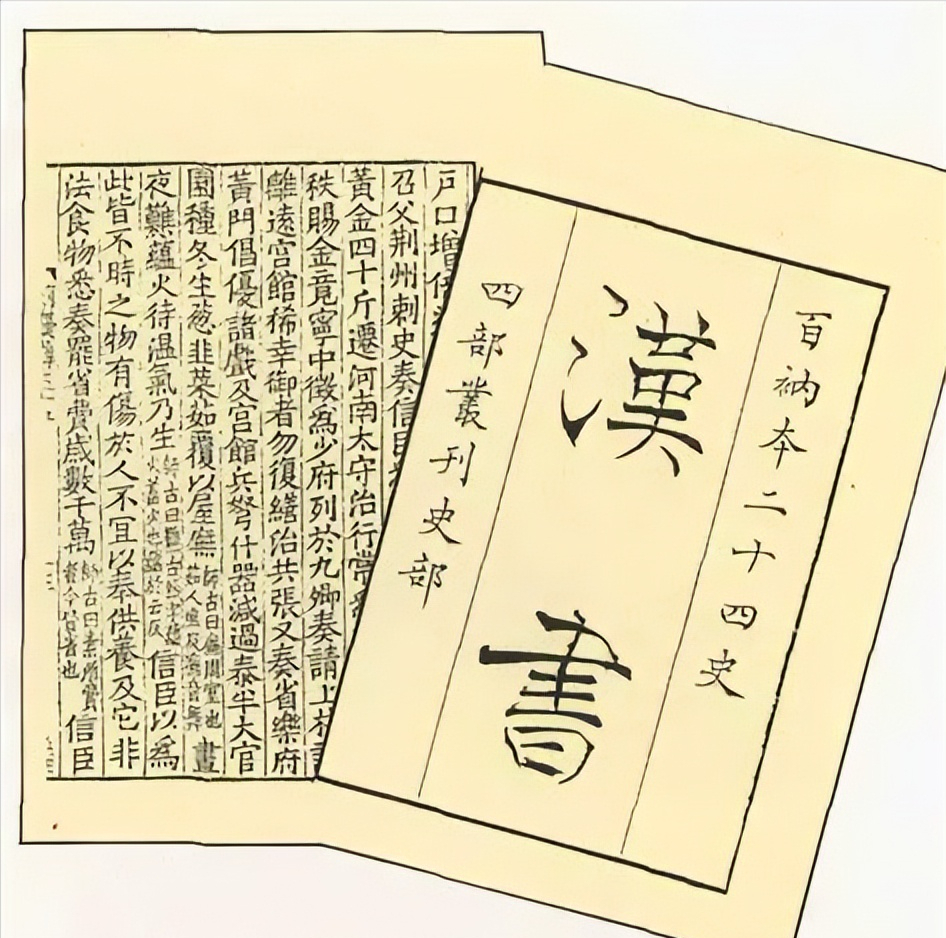 百衲本二十四史
漢書
四部叢刊史部
戶口增倍
召父荆州刺史奏信臣
黃金四十斤遷河南太守治行常
秩賜金竟寧中徵爲少府列於九卿奏請上林
離遠宮館稀幸御者勿復繕治共張又奏省樂府
黃門倡優諸戲及宮館兵弩什器減過泰半大官
園種冬生葱韭菜茹覆以屋廡師古曰廡周室也晝
夜難蘊火待温氣乃生信臣以爲
此皆不時之物有傷於人不宜以奉供養及它非
法食物悉奏罷省費歲數千萬師古曰素所費者今皆省也信臣